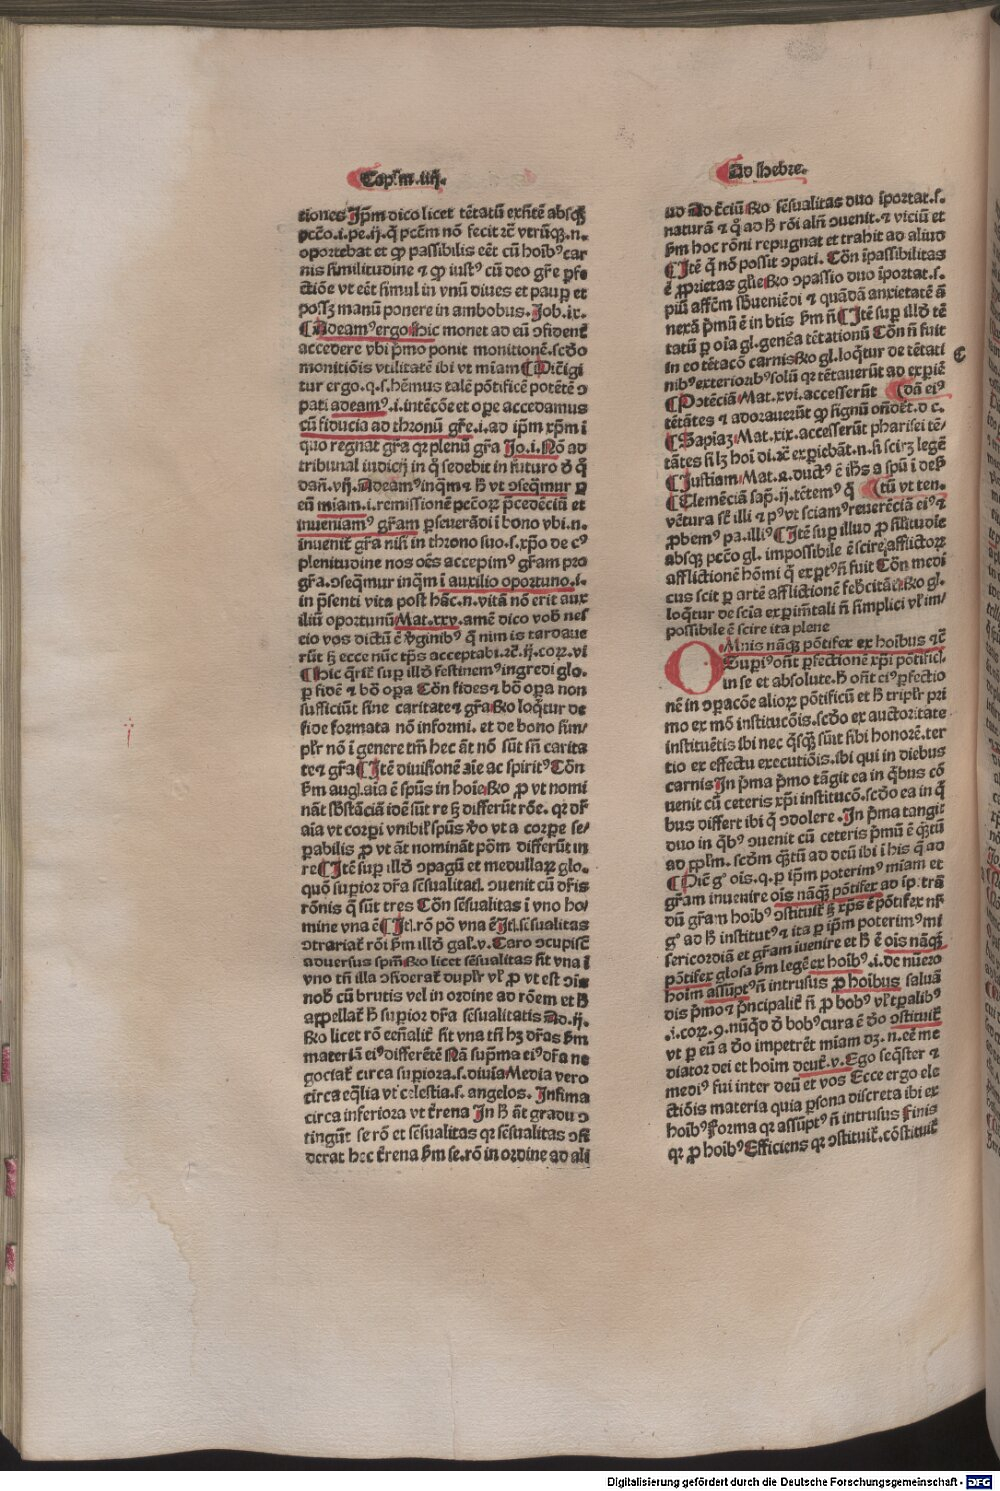 Cap̄m.iiij.
Ad Hebre.
tiones Ip̄m dico licet tētatū exn̄tē absq̄
pcc̄o.i.pe.ij.q̄ pcc̄m nō fecit ⁊c̄ vtrūq̄.n.
oportebat et ꝙ passibilis eēt cū hoīb⁹ car
nis similitudine ⁊ ꝙ iust⁹ cū deo gr̄e ꝑfe
ctiōe vt eēt simul in vnū diues et paup̄ et
possꝫ manū ponere in ambobus. Job.ix.
¶ Adeam⁹ ergo hic monet ad eū ↄfident̄
accedere vbi p̄mo ponit monitionē.scd̄o
monitiōis vtilitatē ibi vt miam ¶ Dic̄igi
tur ergo.q.s.hēmus talē pōtificē potētē ↄ
pati adeam⁹.i.intēcōe et oꝑe accedamus
cū fiducia ad thronū gr̄e.i.ad ip̄m xp̄m ī
quo regnat gr̄a qꝛ plenū gr̄a Jo.i. Nō ad
tribunal iudicij in q̄ sedebit in futuro d̄ q̄
dan̄.vij. Adeam⁹ inq̄m ⁊ h̄ vt ↄseq̄mur ꝑ
eū miam.i.remissionē pccōꝝ p̄cedēciū et
inueniam⁹ gr̄am ꝑseverādi ī bono vbi.n.
īnuenit̄ gr̄a nisi in throno suo.s.xp̄o de c⁹
plenitudine nos oēs accepim⁹ gr̄am pro
gr̄a.ↄseq̄mur inq̄m ī auxilio oportuno.i.
in p̄senti vita post hāc.n.vitā nō erit aux
iliū oportunū Mat.xxv.amē dico vob̄ nes
cio vos dictū ē v̄ginib⁹ q̄ nim is tardaue
rūt h̄ ecce nūc tp̄s acceptabi.⁊c̄.ij.coꝝ.vi
¶ Hic q̄rit̄ suꝑ illd̄ festinem⁹ ingredi glo.
ꝑ fidē ⁊ bō oꝑa Cōn fides ⁊ bō oꝑa non
sufficiūt sine caritate ⁊ gr̄a Ro loq̄tur de
fide formata nō informi. et de bono sim⸗
pl̄r nō ī genere tm̄ hec āt nō sūt sn̄ carita
te ⁊ gr̄a ¶ Itē diuisionē aīe ac spirit⁹ Cōn
fm̄ aug.aīa ē spūs in hoīe Ro ꝓ vt nomi
nāt sb̄stāciā idē sūt re h̄ differūt rōe. qꝛ dr̄
aīa vt corꝑi vnibil̄ spūs v̄o vt a corꝑe se⸗
ꝑabilis ꝓ vt āt nomināt pōm differūt in
re ¶ Itē suꝑ illd̄ ↄpagū et medullaꝝ glo.
quō suꝑior dr̄a sēsualitatꝭ. ↄuenit cū dr̄is
rōnis q̄ sūt tres Cōn sēsualitas ī vno ho⸗
mine vna ē ¶ Itꝭ.rō pō vna ē Itꝭ.sēsualitas
ↄtrariat̄ rōi fm̄ illd̄ gal̄.v. Caro ↄcupisc̄
aduersus spm̄ Ro licet sēsualitas sit vna ī
vno tn̄ illa ↄsiderat̄ dupl̄r vl̄ ꝓ vt est ↄīs
nob̄ cū brutis vel in ordine ad rōem et h̄
appellat̄ h̄ suꝑior dr̄a sēsualitatis Ad.ij.
Ro licet rō eēnalit̄ sit vna tn̄ hꝫ dr̄as fm̄
materiā ei⁹ differētē Nā sup̄ma ei⁹ dr̄a ne
gociat̄ circa suꝑiora.s.diuīa Media vero
circa eq̄lia vt celestia.s. angelos. Infima
circa inferiora vt t̄rena In h̄ āt gradu ↄ
tingūt̄ se rō et sēsualitas qꝛ sēsualitas ↄsi
derat hec t̄rena fm̄ se.rō in ordine ad ali
ud Ad t̄ciū Ro sēsualitas duo īportat.s.
naturā ⁊ q̄ ad h̄ rōi aln̄ ↄuenit.⁊ viciū et
fm̄ hoc rōni repugnat et trahit ad aliud
¶ Itē q̄ nō possit ↄpati. Cōn īpassibilitas
ē ꝓprietas gl̄ie Ro ↄpassio duo īportat.s.
piū affēm sb̄ueniēdi ⁊ quādā anxietatē ā
nexā p̄mū ē in btīs fm̄ n̄ ¶ Itē suꝑ illd̄ tē
tatū ꝑ oīa gl.genēa tētationū Cōn n̄ fuit
in eo tētacō carnis Ro gl.loq̄tur de tētati
nib⁹ exteriorib⁹ solū qꝛ tētauerūt ad exꝑiē
¶ Potēciā Mat.xvi.accesserūt ¶ dā ei⁹
tētātes ⁊ adorauerūt ꝙ signū on̄det.d c.
¶ Sapiaꝫ Mat.xix.accesserūt pharisei tē⸗
tātes si lꝫ hoī di.⁊c̄ exꝑiebāt.n.si scirꝫ legē
¶ Justiam Mat.4.duct⁹ ē ih̄s a spū ī des̄
¶ Clemēciā sap̄.ij.tētem⁹ q̄ ¶ tū vt ten.
vētura sr̄ illi ⁊ p⁹ vt sciam⁹ reuerēciā ei⁹ ⁊
ꝓbem⁹ pa.illi⁹ ¶ Itē suꝑ illud ꝓ silitudīe
absq̄ pcc̄o gl. impossibile ē scire afflictoꝝ
afflictionē hōmi q̄ exꝑt⁹ n̄ fuit Cōn medi
cus scit ꝑ artē afflictionē feb̄citā Ro gl.
loq̄tur de scīa exꝑim̄tali n̄ simplici vl̄ im⸗
possibile ē scire ita plene
OMnis nāq̄ pōtifex ex hoībus ⁊c̄
Suꝑi⁹ on̄t ꝑfectionē xp̄i pōtificꝭ.
in se et absolute.h̄ on̄t ei⁹ ꝑfectio
nē in ↄꝑacōe alioꝝ pōtificū et h̄ tripl̄r pri
mo ex mō institucōis.scd̄o ex auctoritate
instituētis ibi nec q̄sq̄ sūit sibi honorē.ter
tio ex effectu executiōis.ibi qui in diebus
carnis In p̄ma p̄mo tāgit ea in q̄bus cō
uenit cū ceteris xp̄i institucō.scd̄o ea in q̄
bus differt ibi q̄ ↄdolere. In p̄ma tangit
duo in q̄b⁹ ↄuenit cū ceteris p̄mū ē q̄tū
ad ppl̄m.scd̄m q̄tū ad deū ibi ī his q̄ ad
¶ Dic̄ g⁰ oīs.q.ꝑ ip̄m poterim⁹ miam et
gr̄am inuenire oīs nāq̄ pōtifex ad īp̄.trā
dū gr̄am hoīb⁹ ↄstituit̄ h̄ xp̄s ē pōtifex nr̄
g⁰ ad h̄ institut⁹ ⁊ ita ꝑ ip̄m poterim⁹ mi
sericordiā et gr̄am īuenire et h̄ ē oīs nāq̄
pōtifex glosa fm̄ legē ex hoīb⁹.i.de nūero
hoīm assūpt⁹ n̄ intrusus ꝓ hoībus saluā
dis p̄mo ⁊ p̄ncipalit̄ n̄ ꝓ bob⁹ vl̄ tꝑalib⁹
.i.coꝝ.9.nūq̄d d̄ bob⁹ cura ē d̄o ↄstituit̄
vt ꝑ eū a d̄o impetrēt miam dꝫ.n.eē me
diator dei et hoīm deut̄.v. Ego seq̄ster ⁊
medi⁹ fui inter deū et vos Ecce ergo ele
ctiōis materia quia ꝑsona discreta ibi ex
hoīb⁹ Forma qꝛ assūpt⁹ n̄ intrusus Finis
qꝛ ꝓ hoīb⁹ Efficiens qꝛ ↄstituit̄.cōstituit̄
C
i
Digitalisierung gefördert durch die Deutsche Forschungsgemeinschaft - DFG